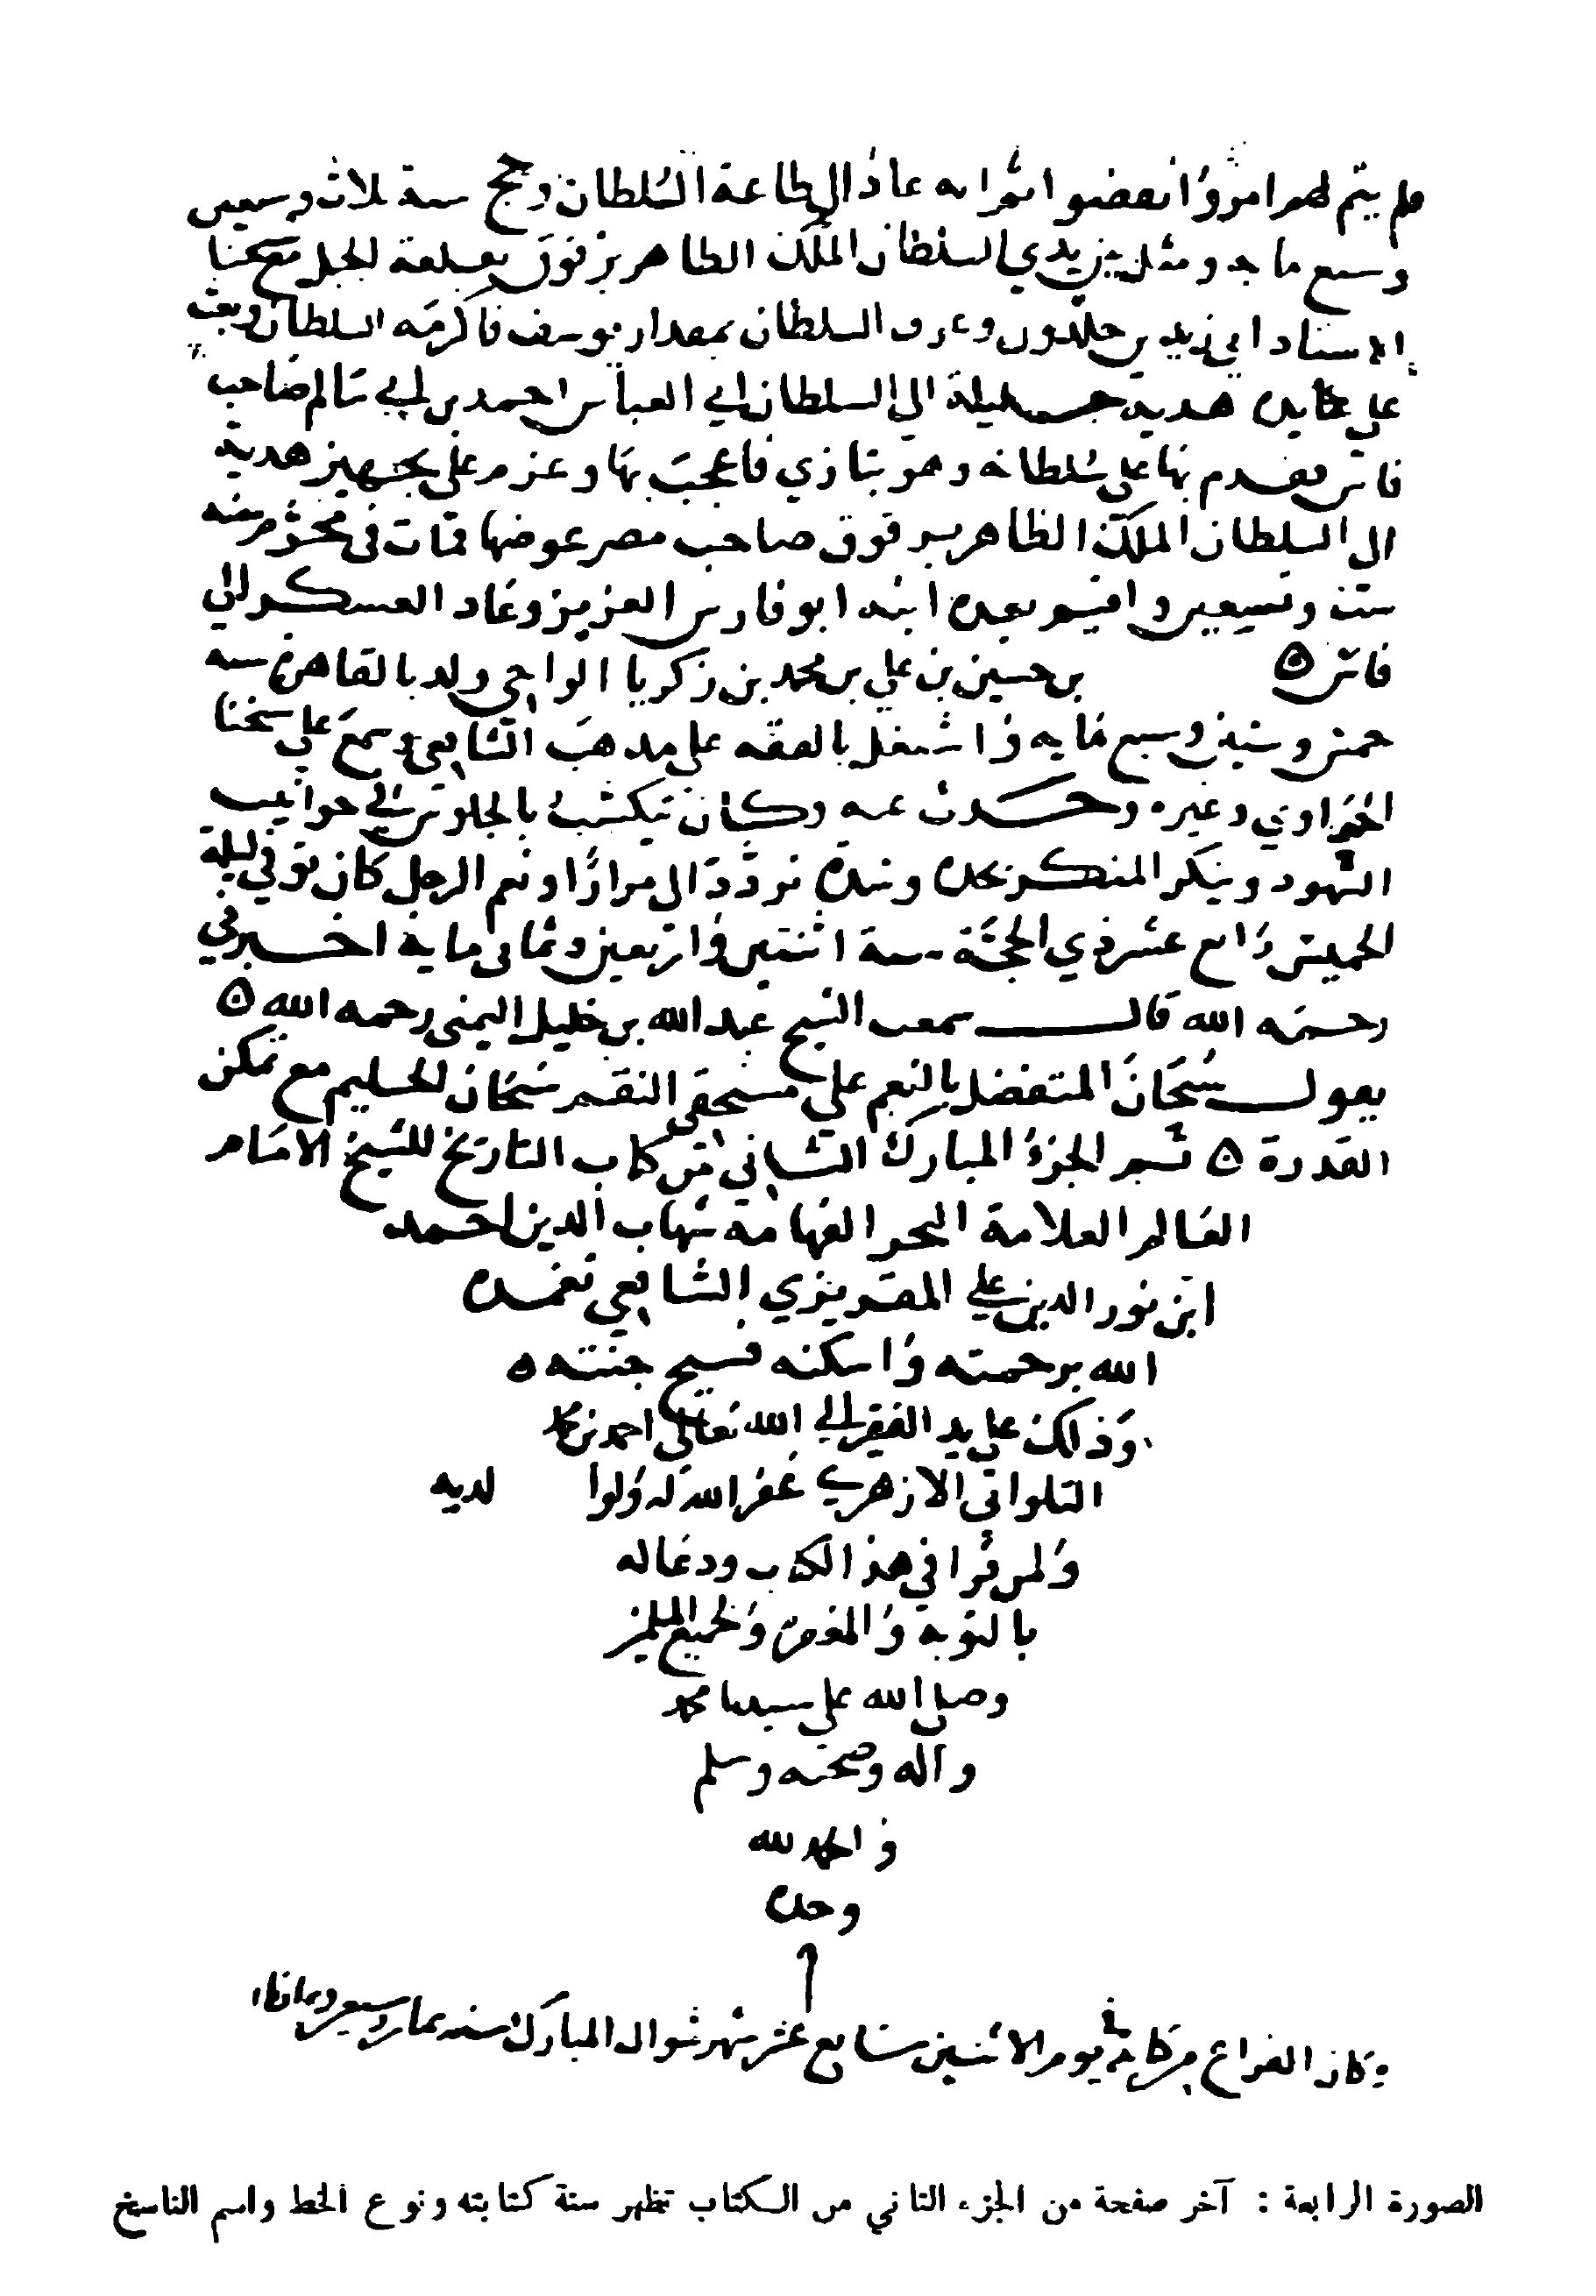 فلم يتم لهم امر وانفضوا ثم انه عاد الى طاعة السلطان وحج سنة ثلاث وتسعين
وسبع ماية ومثل بين يدي السلطان الملك الظاهر برقوق بقلعة الجبل مع شيخنا
الاستاد ابي زيد بن خلدون وعرف السلطان بمقدار يوسف فاكرمه السلطان وبعث
على يده هدية جليلة الى السلطان ابي العباس احمد بن ابي سالم صاحب
فاس فقدم بها على سلطانه وهو بتازي فاعجب بها وعزم على تجهيز هدية
الى السلطان الملك الظاهر برقوق صاحب مصر عوضها فمات في محرم سنه
ست وتسعين واقيم بعده ابنه ابو فارس العزيز وعاد العسكر الى
فاس ه بن حسين بن علي بن محمد بن زكريا الواحي ولد بالقاهرة سنه
خمس وستين وسبع ماية واشتغل بالفقه على مذهب الشافعي وسمع على شيخنا
الحراوي وغيره وحدث عنه وكان يتكسب بالجلوس في حوانيت
الشهود وينكر المنكر بيده وتردد الي مرارا ونعم الرجل كان توفي ليلة
الخميس رابع عشر ذي الحجة سنة اثنتين واربعين وثمانى ماية اخبرني
رحمه الله قال سمعت الشيخ عبد الله بن خليل اليمنى رحمه الله ه
يقول سبحان المتفضل بالنعم على مستحقي النقم سبحان الحليم مع تمكن
القدرة ه تم الجزؤ المبارك الثاني من كتاب التاريخ للشيخ الامام
العالم العلامة البحر الفهامة شهاب الدين احمد
ابن نور الدين علي المقريزي الشافعي تغمده
الله برحمته واسكنه فسيح جنته ه
وذلك على يد الفقير الى الله تعالى احمد بن محمد
التلواني الازهري غفر الله له ولوا لديه
ولمن قرا في هذ الكتاب ودعا له
بالتوبه والمغفره ولجميع المسلمين
وصلى الله على سيدنا محمد
وآله وصحبه وسلم
والحمد لله
وحده
وكان الفراغ من كتابته في يوم الاثنين سابع عشر شهر شوال المبارك سنه ثمان وسبعين وثمانماية
الصورة الرابعة : آخر صفحة من الجزء الثاني من الكتاب تظهر سنة كتابته ونوع الخط واسم الناسخ